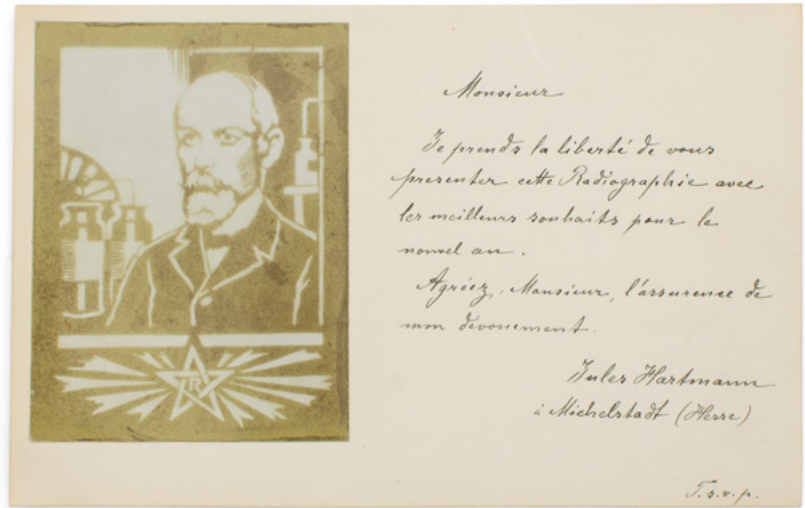 Monsieur
Je prends la liberté de vous
presenter cette Radiographie avec
les meilleurs souhaits pour le
nouvel an.
Agréez, Monsieur, l'assurence de
mon devouement.
Jules Hartmann
à Michelstadt (Hesse)
T.s.v.p.
R